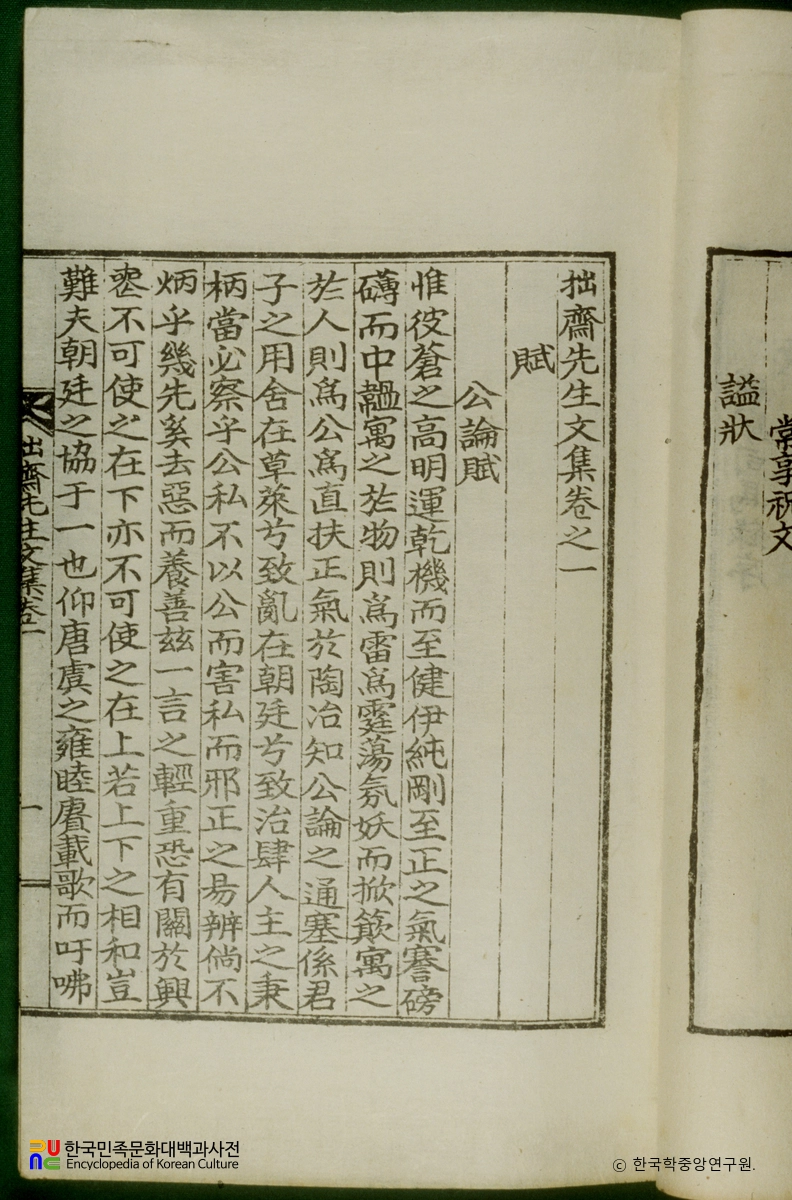 常享祝文
諡狀
拙齋先生文集卷之一
賦
公論賦
惟彼蒼之高明運乾機而至健伊純剛至正之氣騫磅
礴而中韞寓之於物則爲雷爲霆蕩氛妖而掀簸寓之
於人則爲公爲直扶正氣於陶冶知公論之通塞係君
子之用舍在草萊兮致亂在朝廷兮致治肆人主之秉
柄當必察乎公私不以公而害私而邪正之易辨倘不
炳乎幾先奚去惡而養善玆一言之輕重恐有關於興
喪不可使之在下亦不可使之在上若上下之相和豈
難夫朝廷之協于一也仰唐虞之雍睦賡載歌而吁咈
拙齋先生文集卷一
一
한국민족문화대백과사전
Encyclopedia of Korean Culture
ⓒ 한국학중앙연구원.